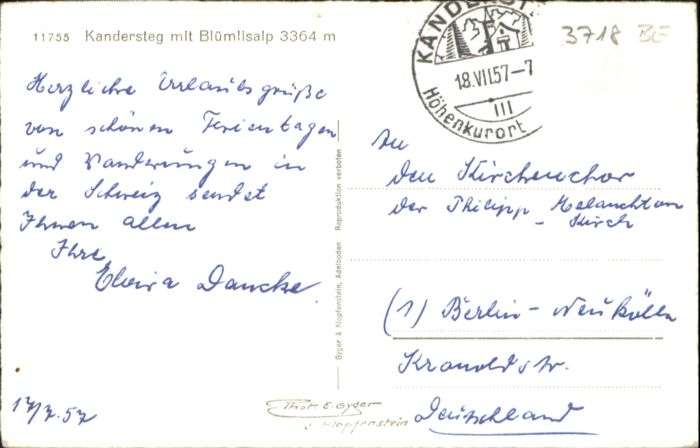 11755 Kandersteg mit Blümlisalp 3364 m
Herzliche Urlaubsgrüße
von schönen Ferientagen
und Wanderungen in
der Schweiz sendet
Ihnen allen
Ihre
Elvira Dancke.
17/7.57
Gyger & Klopfenstein, Adelboden Reproduktion verboten
Phot. E. Gyger
& Klopfenstein
KANDERST
18.VII.57-7
III
Höhenkurort
3718 BE
An
den Kirchenchor
der Philipp Melanchton
- Kirch
(1) Berlin-Neukölln
Kranoldstr.
Deutschland